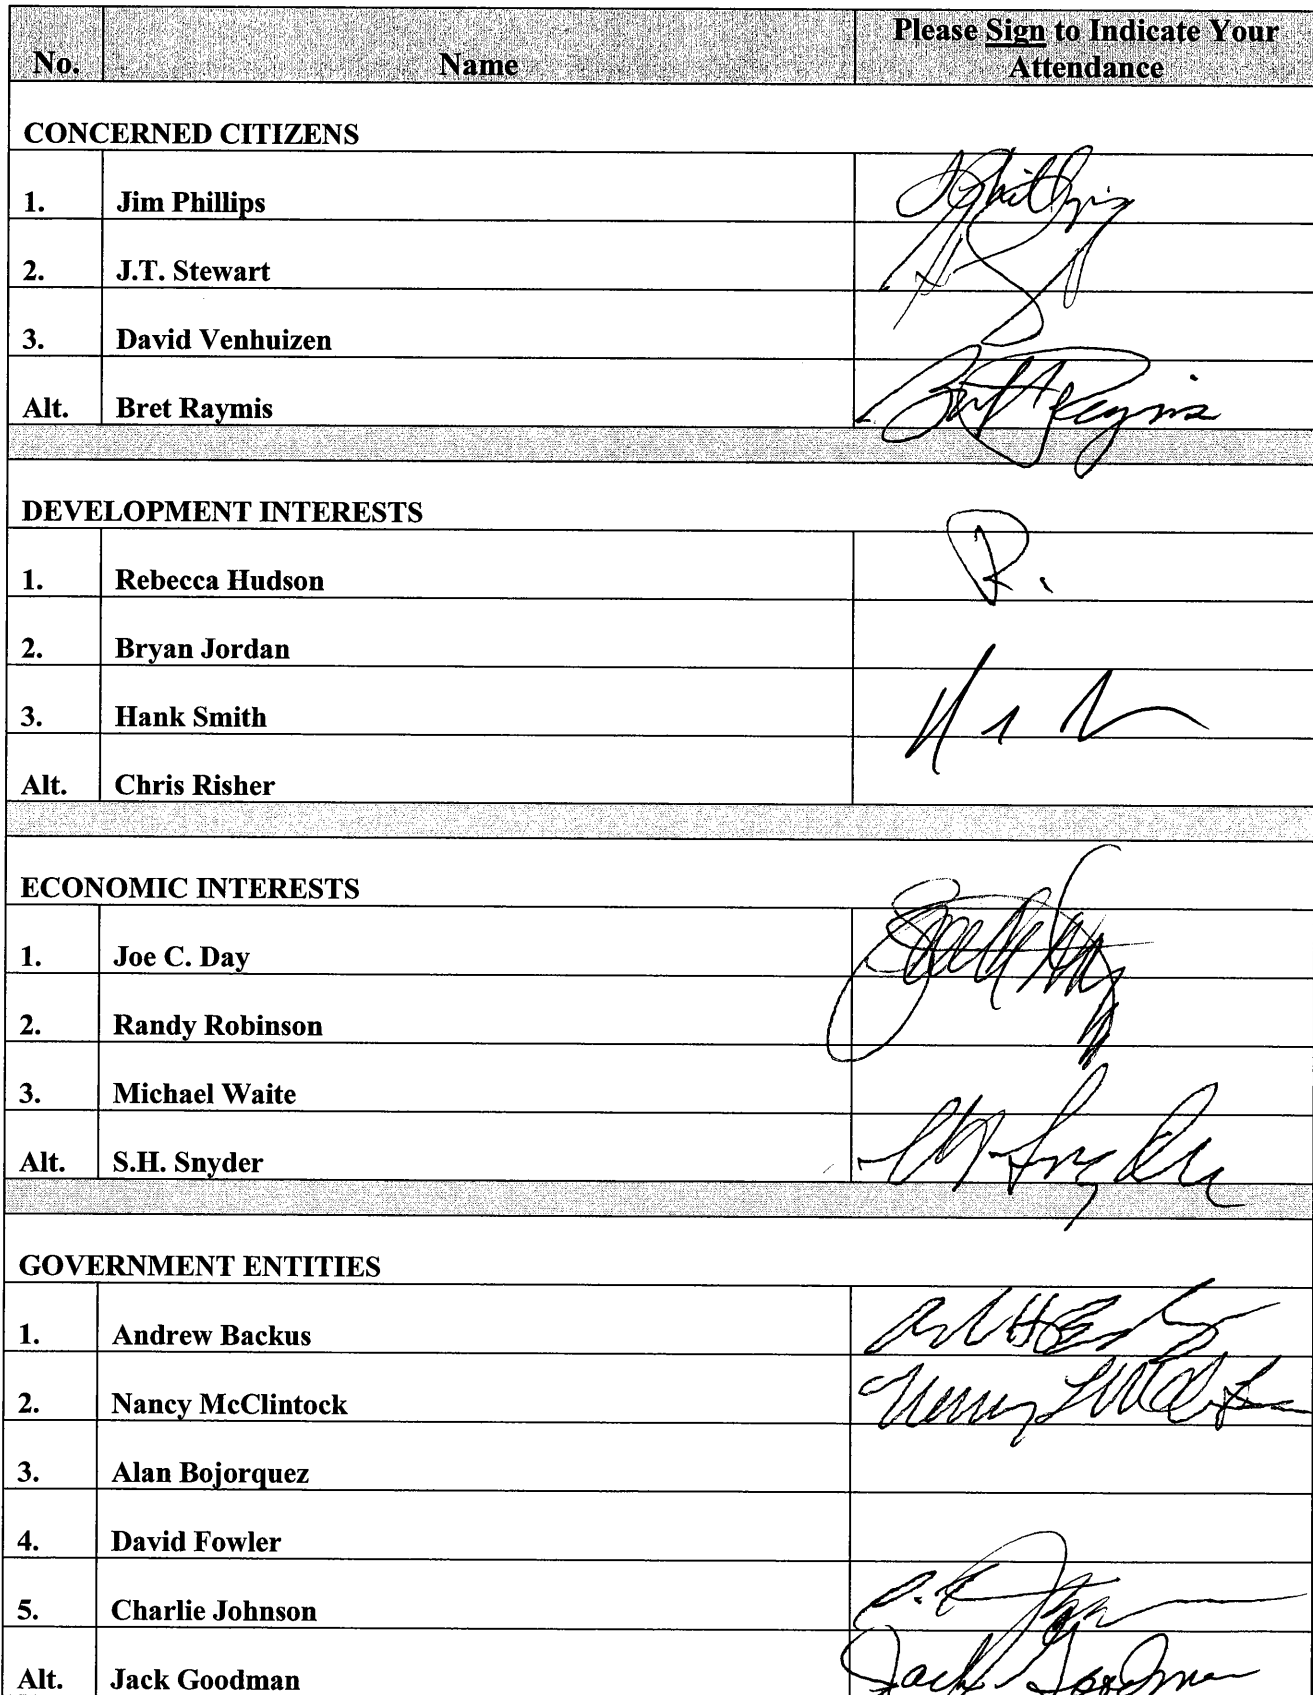 No. Name Please Sign to Indicate Your Attendance
CONCERNED CITIZENS
1. Jim Phillips JPhillips
2. J.T. Stewart
3. David Venhuizen
Alt. Bret Raymis Bret Raymis
DEVELOPMENT INTERESTS
1. Rebecca Hudson R.
2. Bryan Jordan
3. Hank Smith
Alt. Chris Risher
ECONOMIC INTERESTS
1. Joe C. Day
2. Randy Robinson
3. Michael Waite
Alt. S.H. Snyder Snyder
GOVERNMENT ENTITIES
1. Andrew Backus
2. Nancy McClintock Nancy
3. Alan Bojorquez
4. David Fowler
5. Charlie Johnson
Alt. Jack Goodman Jack Goodman